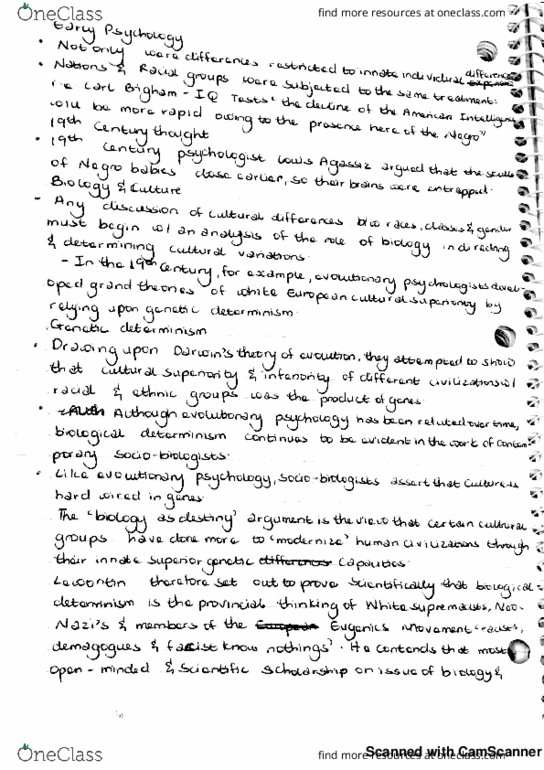 OneClass
find more resources at oneclass.com
Early Psychology
• Not only were differences restricted to innate individual differences
• Nations & Racial groups were subjected to the same treatment:
i.e Carl Brigham - IQ Tests "the decline of the American Intelligence
will be more rapid owing to the presence here of the Negro"
19th Century thought
• 19th Century psychologist Louis Agassiz argued that the skulls
of Negro babies close earlier, so their brains were entrapped.
Biology & Culture
- Any discussion of cultural differences b/w races, classes & gender
must begin w/ an analysis of the role of biology in directing
& determining cultural variations.
- In the 19th Century, for example, evolutionary psychologists devel-
oped grand theories of white European cultural superiority by
relying upon genetic determinism.
Genetic determinism
• Drawing upon Darwin's theory of evolution, they attempted to show
that cultural superiority & inferiority of different civilizations w/
racial & ethnic groups was the product of genes.
• Although evolutionary psychology has been refuted over time,
biological determinism continues to be evident in the work of contem-
porary socio-biologists.
• Like evolutionary psychology, socio-biologists assert that culture is
hard wired in genes.
The 'biology as destiny' argument is the view that certain cultural
groups have done more to 'modernize' human civilizations through
their innate superior genetic differences capacities.
Lewontin therefore set out to prove scientifically that biological
determinism is the provincial thinking of White supremacists, Neo-
Nazi's & members of the European Eugenics Movement 'racists,
demagogues & facist know nothings'. He contends that most
open-minded & scientific scholarship on issue of biology &
OneClass
find more resources at oneclass.com
Scanned with CamScanner